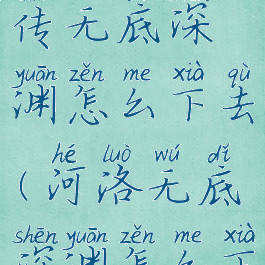 传无底深
yuān zěn me xià qù
渊怎么下去
hé luò wú dǐ
(河洛无底
shēn yuān zěn me xià
深渊怎么下